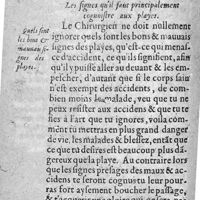 Les signes qu'il faut principalement
cognoistre aux playes.
Le Chirurgien ne doit nullement
ignorer quels sont les bons & mauuais
signes des playes, qu'est-ce qui mena-
se d'accident, ce qu'ils signifient, afin
qu'il puisse aller au deuant & les em-
pescher, d'autant que si le corps sain
n'est exempt des accidents, de com-
bien moins le malade, veu que tu ne
peux resister aux accidens & que tu te
fies à l'art que tu ignores, voila com-
ment tu mettras en plus grand danger
de vie, les malades & blessez, entant
que ce que tu desires est beaucoup plus dã-
gereux que la playe. Au contraire lors
que les signes presages des maux & ac-
cidents te seront cognus tu leur pour-
ras fort aysement boucher le passage,
Quels sont
les bons &
mauuais si-
gnes des
playes.